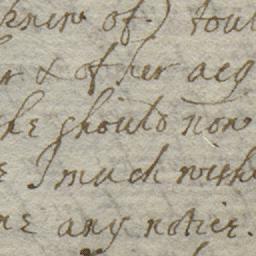 of.) tou
r & of her acq
she should now
I much wish
me any notice.